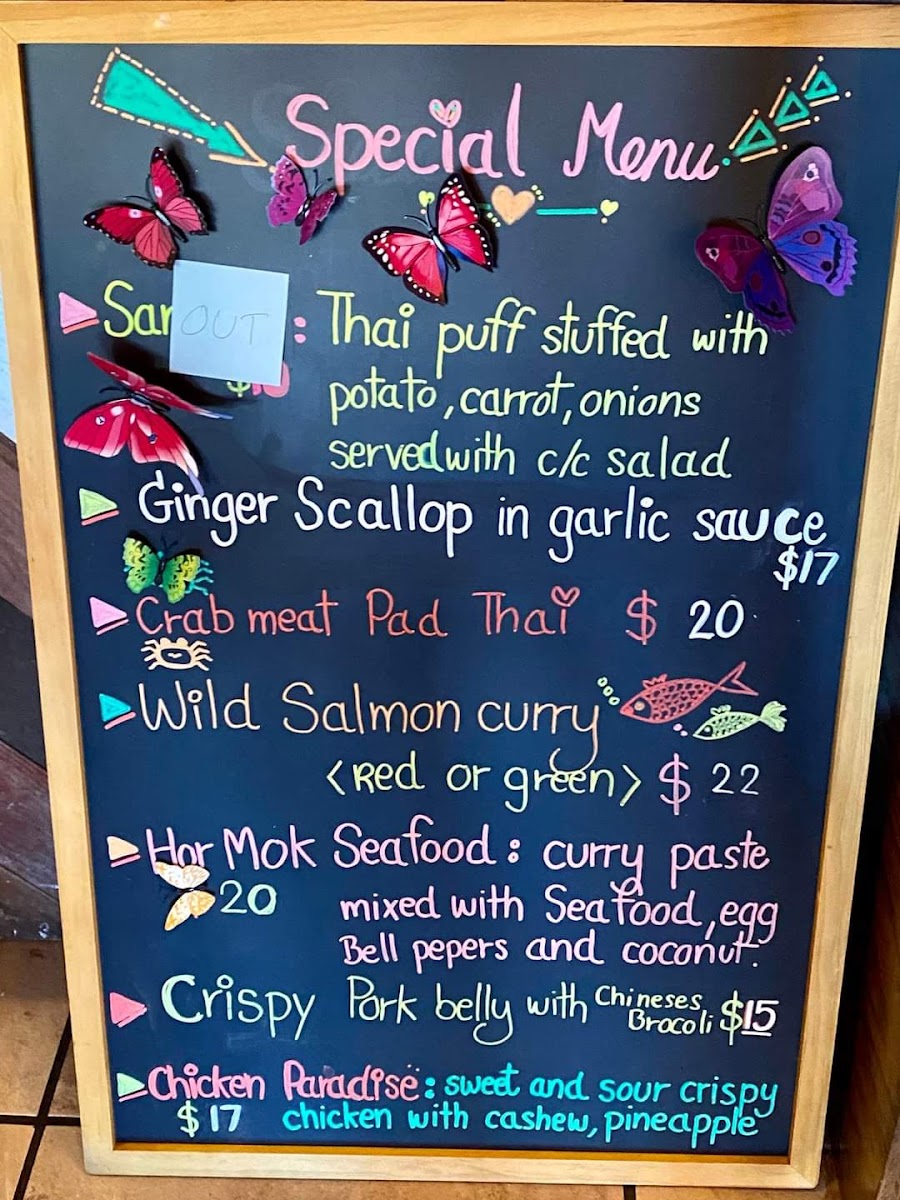 Special Menu
OUT : Thai puff stuffed with
potato, carrot, onions
served with c/c salad
Ginger Scallop in garlic sauce
$17
Crab meat Pad Thai $ 20
Wild Salmon curry
<Red or green> $ 22
Hor Mok Seafood: curry paste
20 mixed with Seafood, egg
Bell pepers and coconut.
Crispy Pork belly with Chineses
Brocoli $15
Chicken Paradise: sweet and sour crispy
$17 chicken with cashew, pineapple